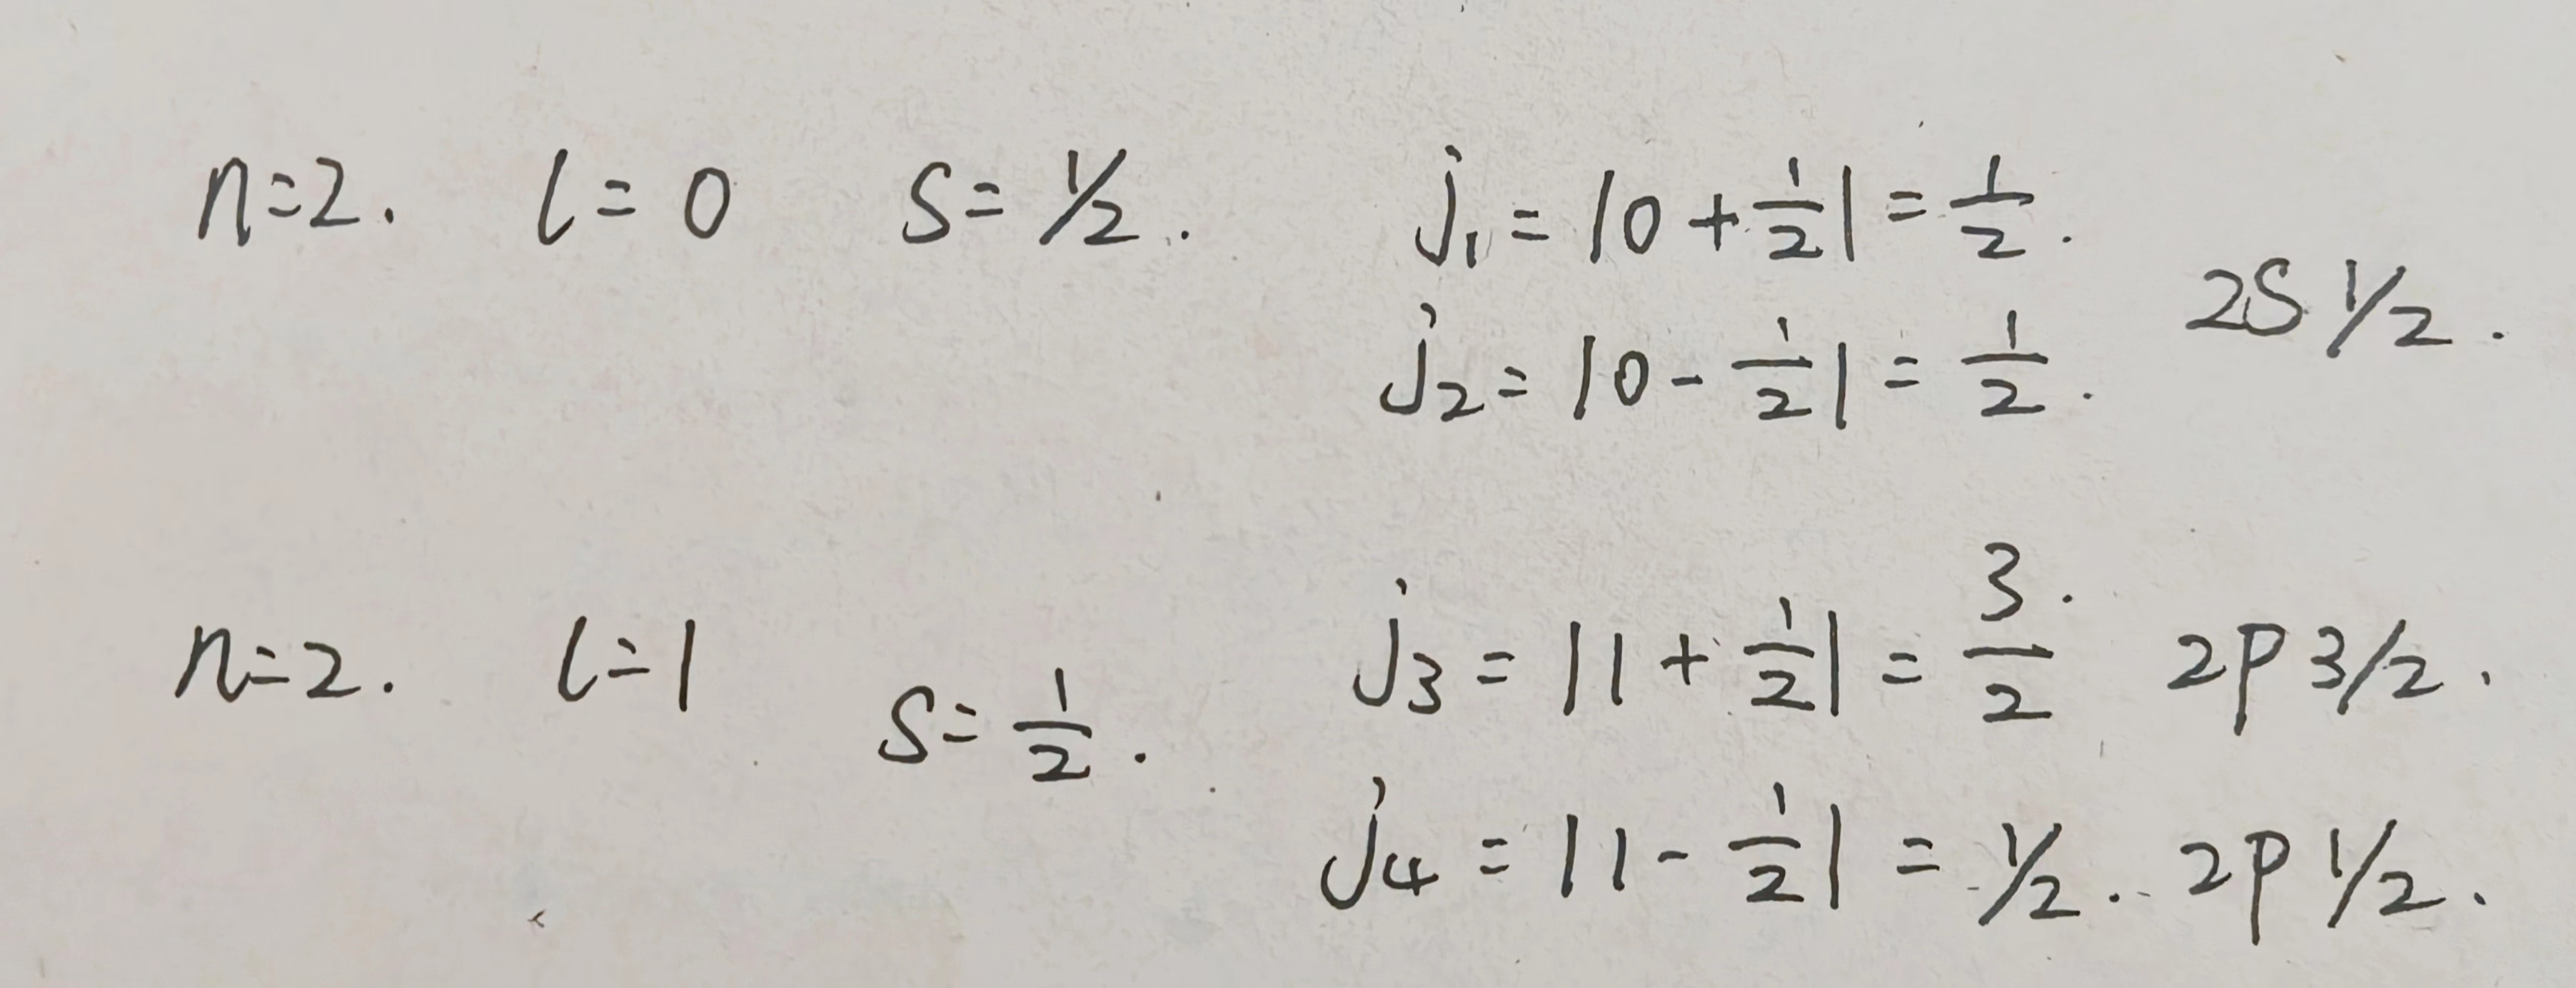 n=2. l=0 S=1/2. j₁=|0+1/2|=1/2.
2S 1/2.
j₂=|0-1/2|=1/2.
n=2. l=1 S=1/2. j₃=|1+1/2|=3/2. 2P 3/2.
j₄=|1-1/2|=1/2. 2P 1/2.